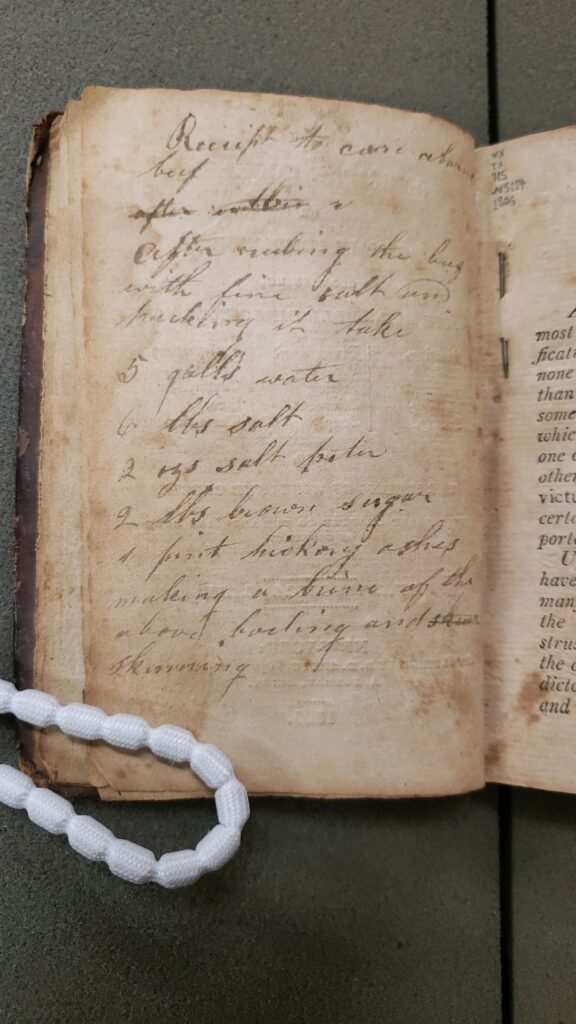 Receipt to cure
beef
after
After rubing the beef
with fine salt and
packing it take
5 galls water
6 lbs salt
2 ozs salt peter
2 lbs brown sugar
1 pint hickory ashes
making a brine of the
above boiling and
skimming
TX
715
1805
most
ficati
none
than
some
which
one o
other
victu
certa
porte
U
have
man
the
strus
the c
dicta
and